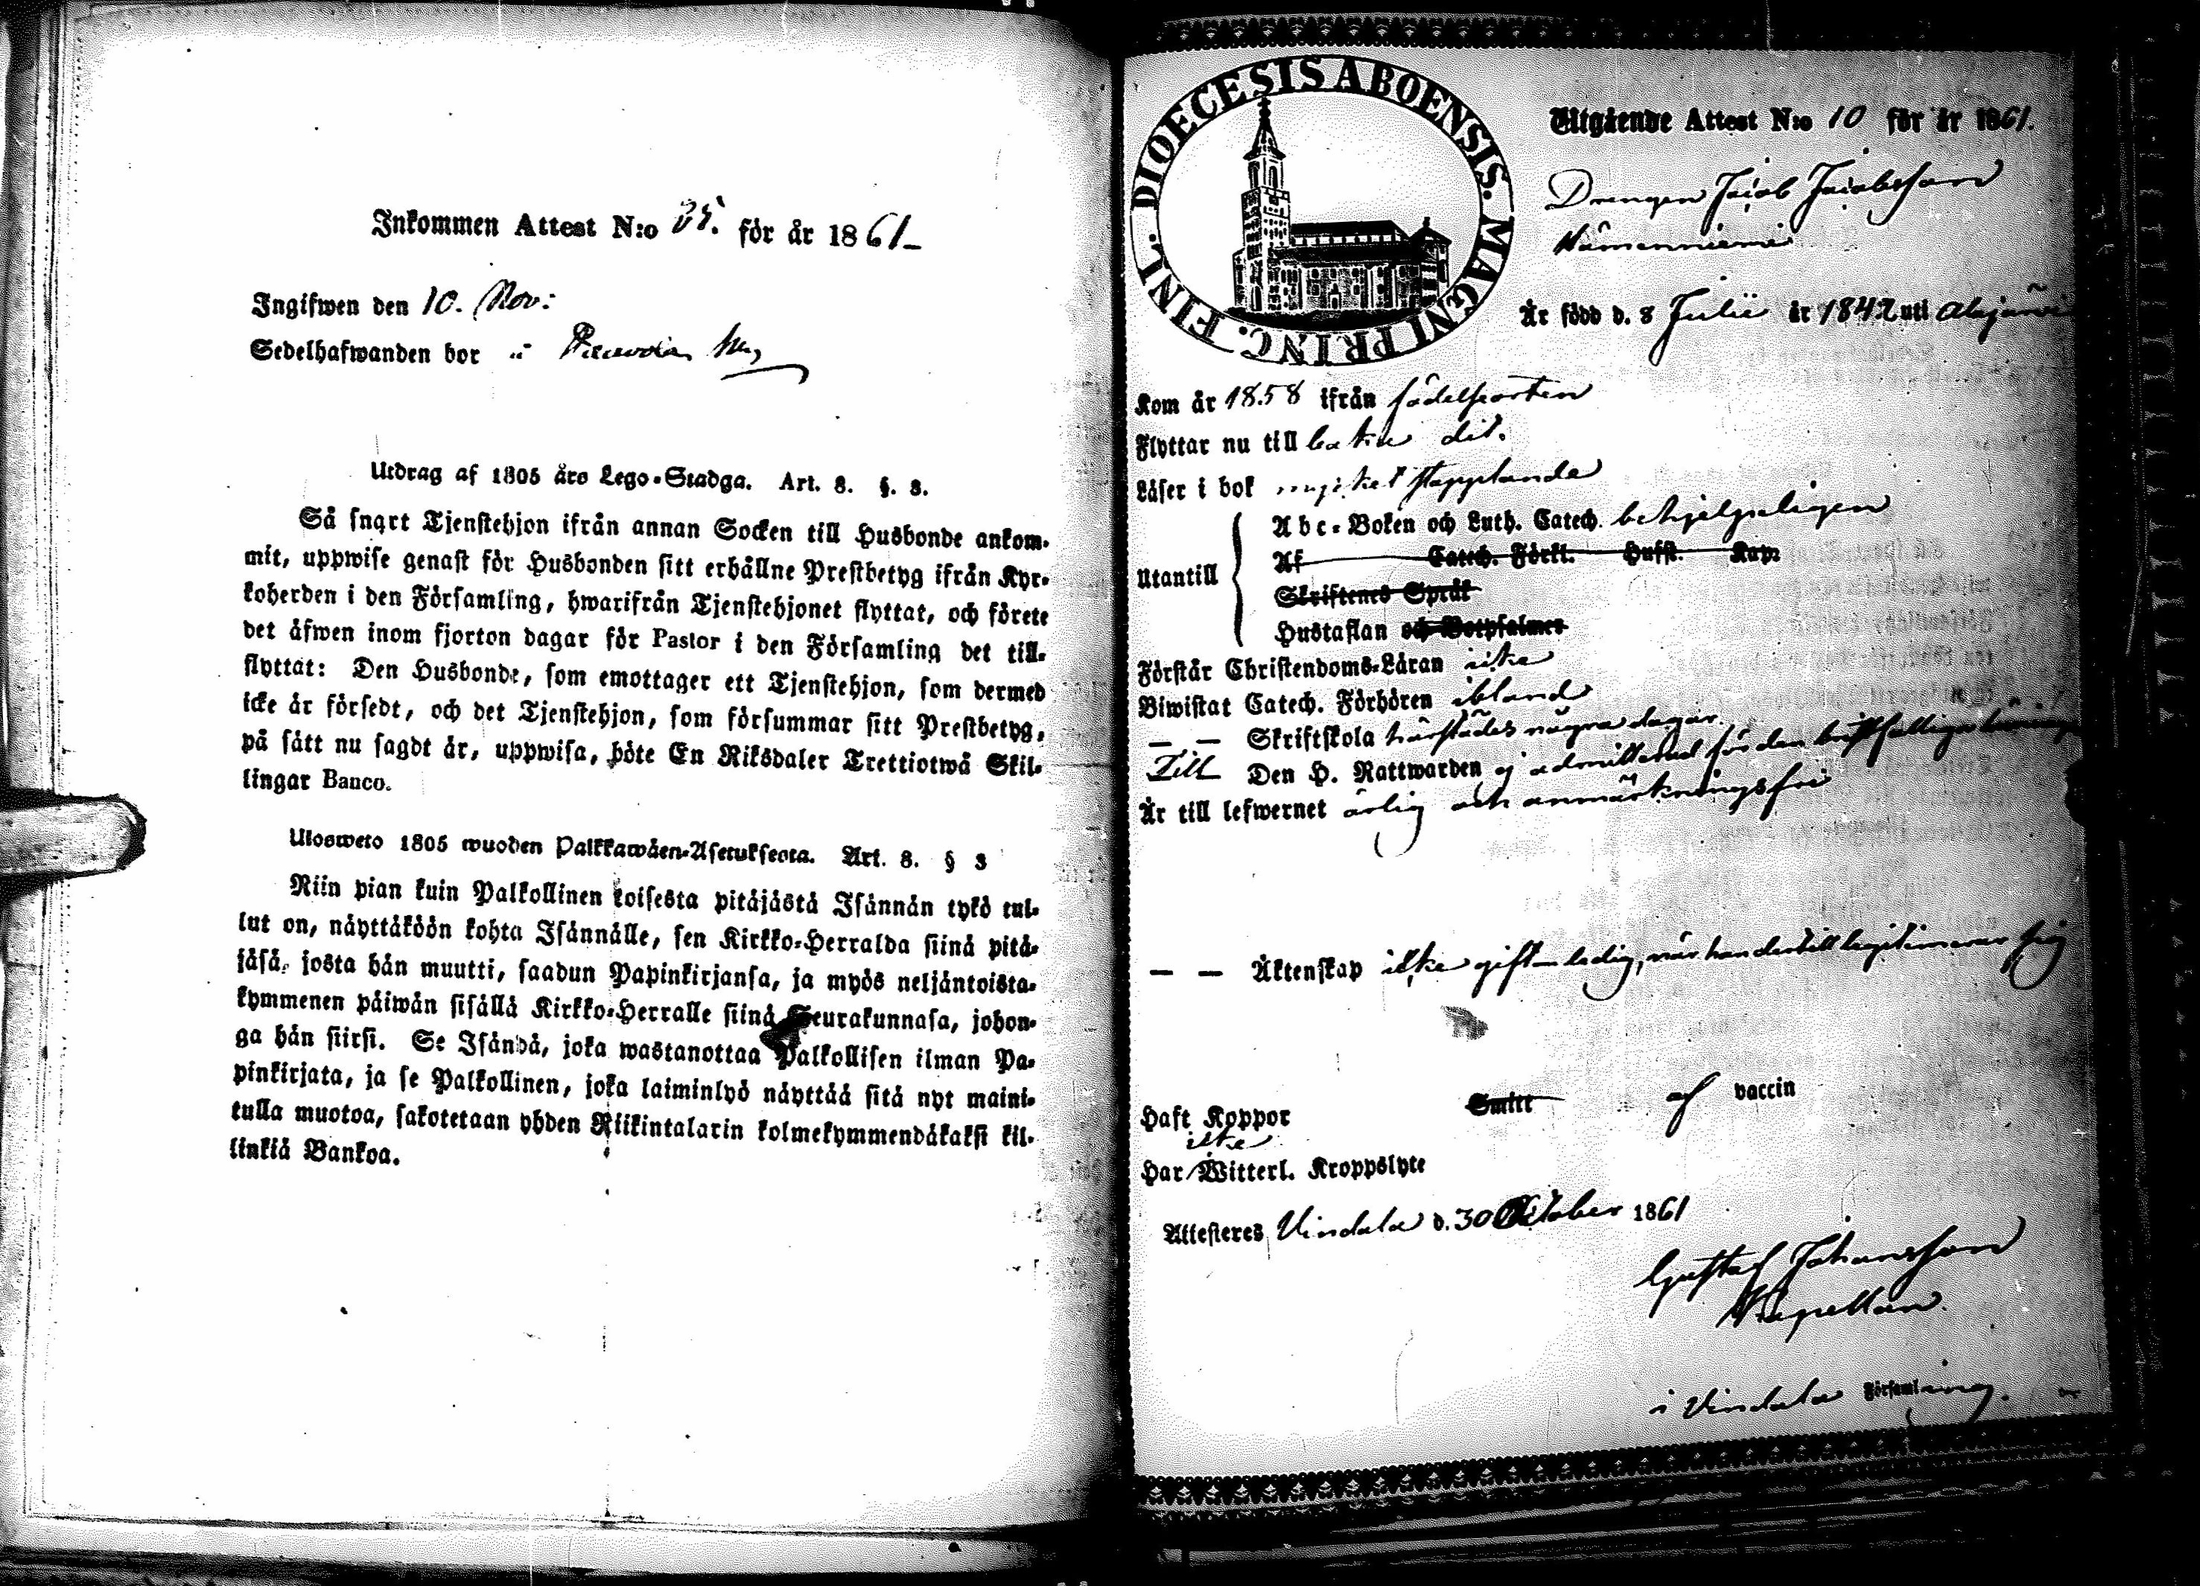 Inkommen Attest N:o 35. för år 1861
Ingifwen den 10. Nov:
Sedelhafwanden bor
Utdrag af 1805 års Lego-Stadga. Art. 8. §. 3.
Så snart Tjenstehjon ifrån annan Socken till Husbonde ankom-
mit, uppwise genast för Husbonden sitt erhållne Prestbetyg ifrån Kyr-
koherden i den Församling, hwarifrån Tjenstehjonet flyttat, och förete
det äfwen inom fjorton dagar för Pastor i den Församling det till-
flyttat: Den Husbonde, som emottager ett Tjenstehjon, som dermed
icke är försedt, och det Tjenstehjon, som försummar sitt Prestbetyg,
på sätt nu sagdt är, uppwisa, böte En Riksdaler Trettiotwå Skil-
lingar Banco.
Ulosweto 1805 wuoden Palkkawäen-Asetuksesta. Art. 8. § 3
Niin pian kuin Palkollinen toisesta pitäjästä Isännän tykö tul-
lut on, näyttäköön kohta Isännälle, sen Kirkko-Herralda siinä pitä-
jäsä, josta hän muutti, saadun Papinkirjansa, ja myös neljäntoista-
kymmenen päiwän sisällä Kirkko-Herralle siinä Seurakunnasa, johon-
ga hän siirsi. Se Isändä, joka wastanottaa Palkollisen ilman Pa-
pinkirjata, ja se Palkollinen, joka laiminlyö näyttää sitä nyt maini-
tulla muotoa, sakotetaan yhden Riikintalarin kolmekymmendäkaksi kil-
linkiä Bankoa.
DIOECESIS ABOENSIS. MAGNI PRINC. FINL.
Utgående Attest N:o 10 för år 1861.
Drengen Jacob Jacobsson
Är född d. 8 Julii år 1842 uti Alajärvi
Kom år 1858 ifrån födelseorten
Flyttar nu till baka dit.
Läser i bok mycket stapplande
Utantill
Abc-Boken och Luth. Catech. behjelpeligen
Af Catech. Förkl. Husst. Kap.
Skriftenes Språk
Hustaflan och Botpsalmer
Förstår Christendoms-Läran icke
Biwistat Catech. Förhören ibland
— — Skriftskola härstädes några dagar
Till Den H. Nattwarden ej admitterad för den bristfälliga
Är till lefwernet ärlig och anmärkningsfri
— — Äktenskap icke gift – ledig, när han dertill legitimerar sig
Haft Koppor Smitt af vaccin
icke
Har Witterl. Kroppslyte
Attesteres Vindala d. 30 October 1861
Gustaf Johansson
Kapellan.
i Vindala Församling.